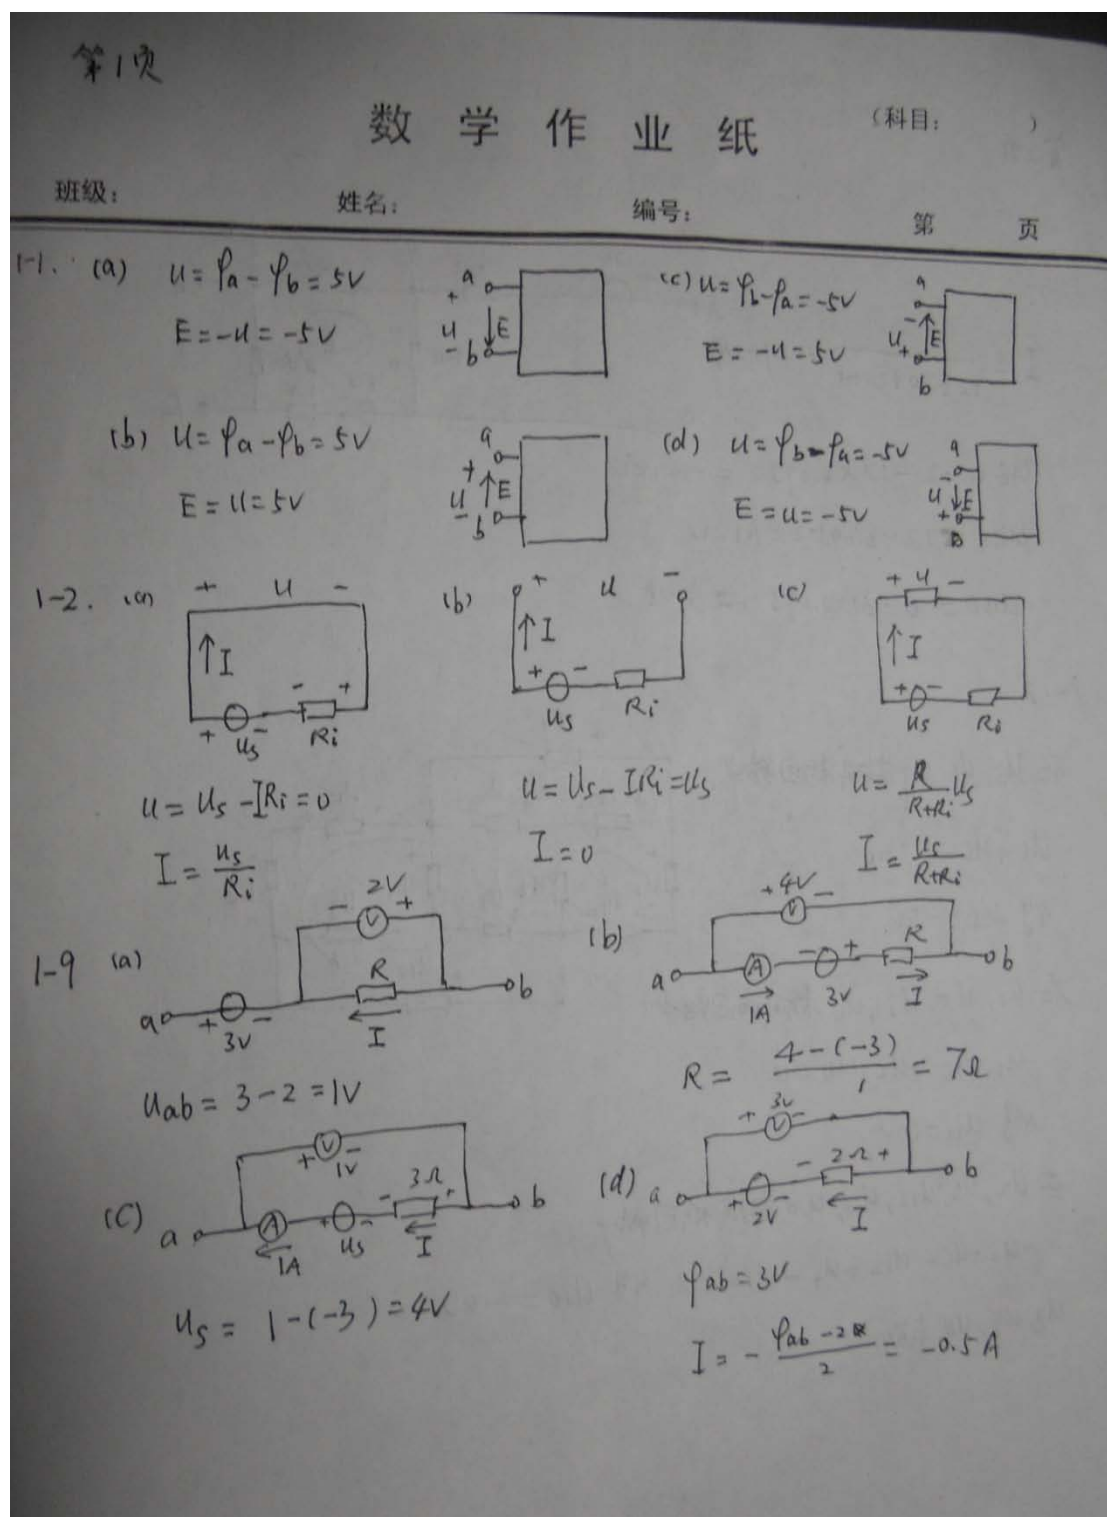 第1页
数学作业纸
(科目: )
班级: 姓名: 编号: 第 页
1-1. (a) u=φa-φb=5V
E=-u=-5V
a
+
u E
- b
(c) u=φb-φa=-5V
E=-u=5V
a
-
u E
+
b
(b) u=φa-φb=5V
E=u=5V
a
+
u E
- b
(d) u=φb-φa=-5V
E=u=-5V
a
-
u E
+
b
1-2. (a) + u -
I
- +
+ us - Ri
u=us-IRi=0
I=us/Ri
(b) + u -
I
+ -
us Ri
u=us-IRi=us
I=0
(c) + u -
I
+ -
us Ri
u=R/(R+Ri) us
I=us/(R+Ri)
1-9 (a) 2V
- V +
R
a + - b
3V I
uab=3-2=1V
(b) +4V -
V
a A - + R b
1A 3V I
R=(4-(-3))/1=7Ω
(c) + V -
1V
3Ω
a A + - - + b
1A us I
us=1-(-3)=4V
(d) 3V
+ V -
- 2Ω +
a + - b
2V I
φab=3V
I=-(φab-2)/2=-0.5A